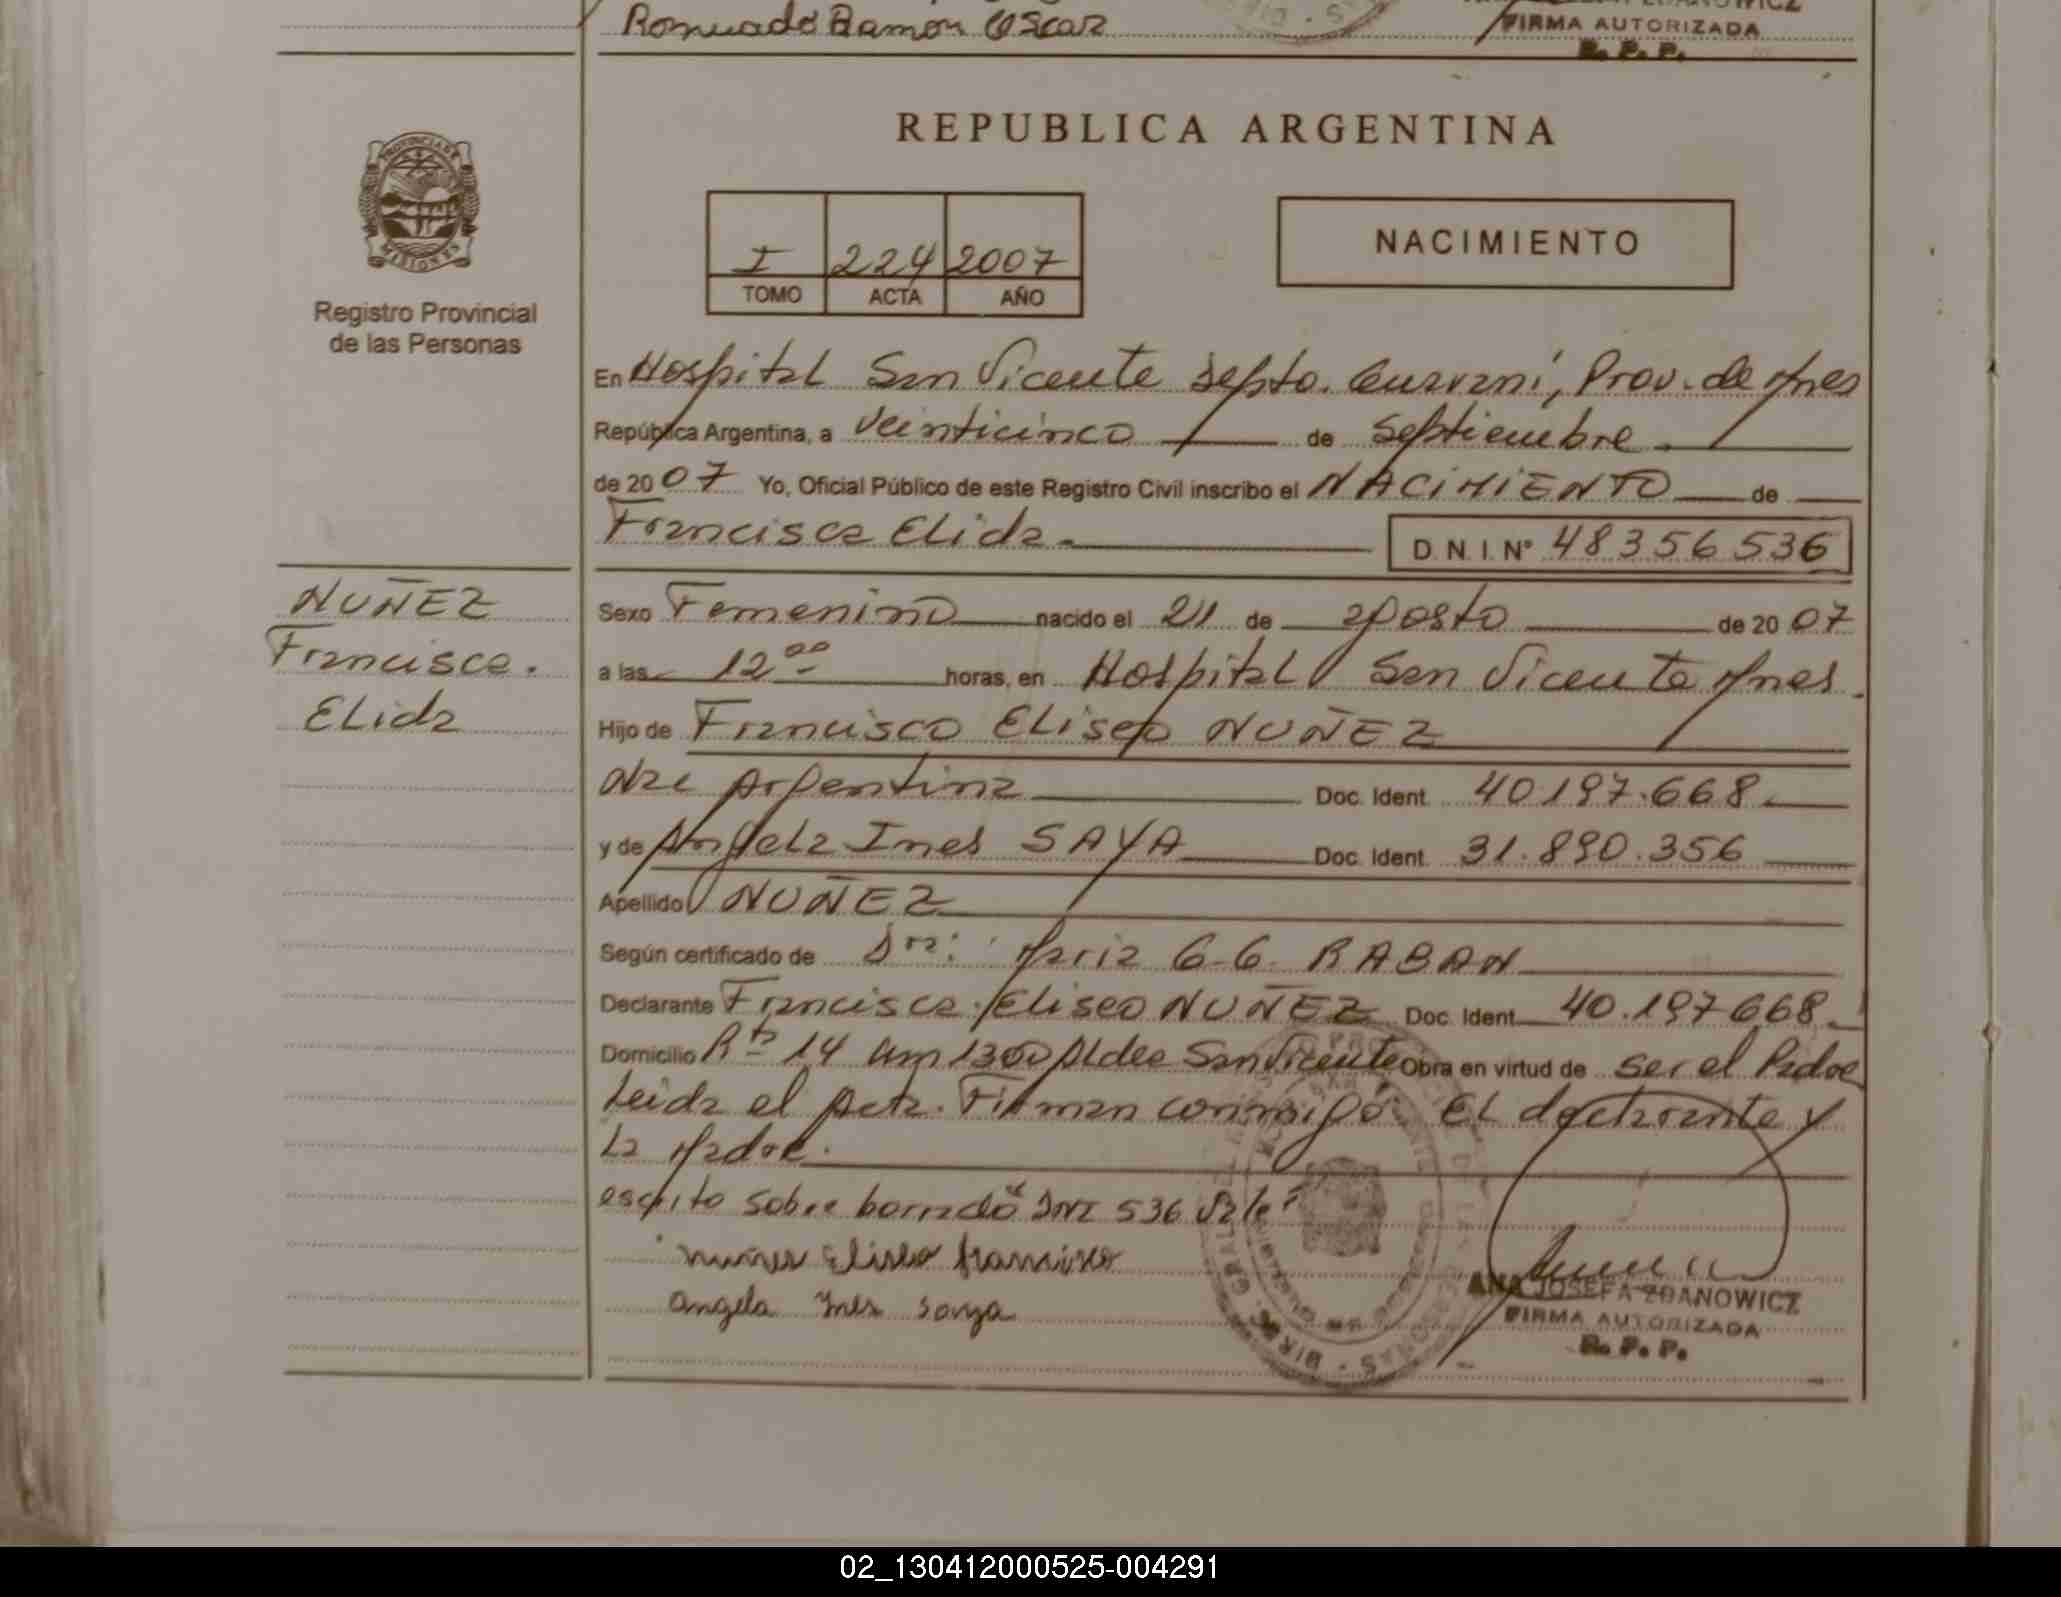 Romualdo Ramon Oscar
FIRMA AUTORIZADA
R. P. P.
REPUBLICA ARGENTINA
PROVINCIA DE
MISIONES
Registro Provincial
de las Personas
I 224 2007
TOMO ACTA AÑO
NACIMIENTO
En Hospital San Vicente Depto. Guarani, Prov. de Mnes
República Argentina, a Veinticinco de Septiembre
de 2007 Yo, Oficial Público de este Registro Civil inscribo el NACIMIENTO de
Francisca Elida D.N.I.Nº 48356536
NUÑEZ
Francisca
Elida
Sexo Femenino nacido el 21 de agosto de 2007
a las 12 00 horas, en Hospital San Vicente Mnes.
Hijo de Francisco Eliseo NUÑEZ
Nac Argentina Doc. Ident. 40197.668
y de Angela Ines SAYA Doc. Ident. 31.890.356
Apellido NUÑEZ
Según certificado de Dra: Maria G.G. RABAN
Declarante Francisca Eliseo NUÑEZ Doc. Ident. 40.197668
Domicilio Rta 14 Km 1300 Aldea San Vicente Obra en virtud de ser el Padre
Leida el Acta. Firman conmigo El declarante y
La Madre.
escrito sobre borrado DNI 536 Vale
Nuñes Eliseo francisco
Angela Ines
ANA JOSEFA ZDANOWICZ
FIRMA AUTORIZADA
R. P. P.
02_130412000525-004291